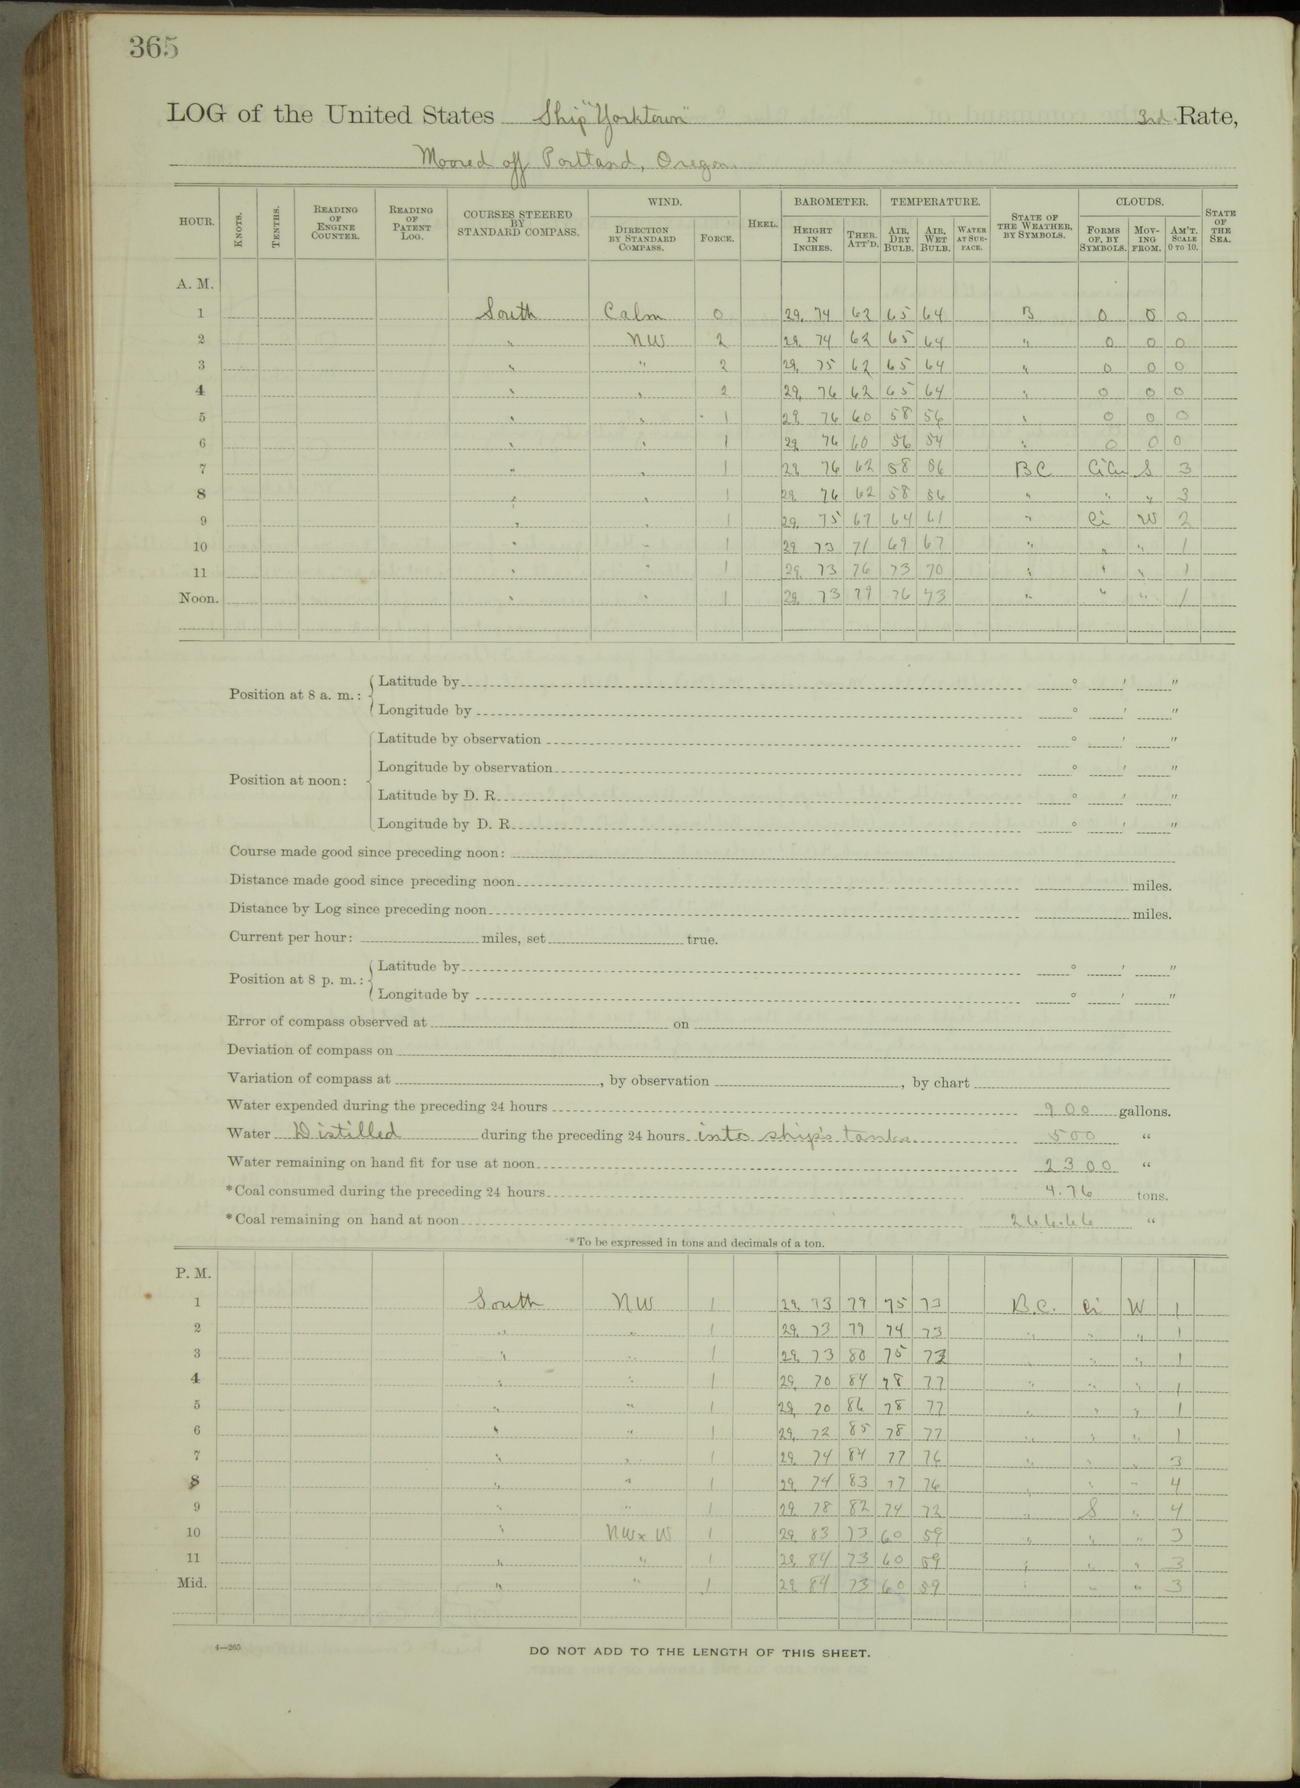 365
LOG of the United States Ship "Yorktown" 3rd Rate,
Moored off Portland, Oregon.
HOUR. KNOTS. TENTHS. READING OF ENGINE COUNTER. READING OF PATENT LOG. COURSES STEERED BY STANDARD COMPASS. WIND. DIRECTION BY STANDARD COMPASS. FORCE. HEEL. BAROMETER. HEIGHT IN INCHES. THER. ATT'D. TEMPERATURE. AIR, DRY BULB. AIR, WET BULB. WATER AT SURFACE. STATE OF THE WEATHER, BY SYMBOLS. CLOUDS. FORMS OF, BY SYMBOLS. MOVING FROM. AM'T. SCALE 0 TO 10. STATE OF THE SEA.
A. M.
1 South Calm 0 29. 74 62 65 64 B 0 0 0
2 " NW 2 29. 74 62 65 64 " 0 0 0
3 " " 2 29. 75 62 65 64 " 0 0 0
4 " " 2 29. 76 62 65 64 " 0 0 0
5 " " 1 29. 76 60 58 56 " 0 0 0
6 " " 1 29. 76 60 56 54 " 0 0 0
7 " " 1 29. 76 62 58 56 BC CiCu S 3
8 " " 1 29. 76 62 58 56 " " " 3
9 " " 1 29. 75 67 64 61 " Ci W 2
10 " " 1 29. 73 71 69 67 " " " 1
11 " " 1 29. 73 76 73 70 " " " 1
Noon. " " 1 29. 73 79 76 73 " " " 1
Position at 8 a. m.: Latitude by ° ′ ″
Longitude by ° ′ ″
Latitude by observation ° ′ ″
Longitude by observation ° ′ ″
Position at noon:
Latitude by D. R. ° ′ ″
Longitude by D. R. ° ′ ″
Course made good since preceding noon:
Distance made good since preceding noon miles.
Distance by Log since preceding noon miles.
Current per hour: miles, set true.
Position at 8 p. m.: Latitude by ° ′ ″
Longitude by ° ′ ″
Error of compass observed at on
Deviation of compass on
Variation of compass at , by observation , by chart
Water expended during the preceding 24 hours 900 gallons.
Water Distilled during the preceding 24 hours into ship's tanks 500 "
Water remaining on hand fit for use at noon 2300 "
*Coal consumed during the preceding 24 hours 4.76 tons.
*Coal remaining on hand at noon 266.66 "
*To be expressed in tons and decimals of a ton.
P. M.
1 South NW 1 29. 73 79 75 73 B.C. Ci W 1
2 " " 1 29. 73 79 74 73 " " " 1
3 " " 1 29. 73 80 75 73 " " " 1
4 " " 1 29. 70 84 78 77 " " " 1
5 " " 1 29. 70 86 78 77 " " " 1
6 " " 1 29. 72 85 78 77 " " " 1
7 " " 1 29. 74 84 77 76 " " " 3
8 " " 1 29. 74 83 77 76 " " " 4
9 " " 1 29. 78 82 74 72 " S " 4
10 " NWxW 1 29. 83 73 60 59 " " " 3
11 " " 1 29. 84 73 60 59 " " " 3
Mid. " " 1 29. 84 73 60 59 " " " 3
4—265
DO NOT ADD TO THE LENGTH OF THIS SHEET.